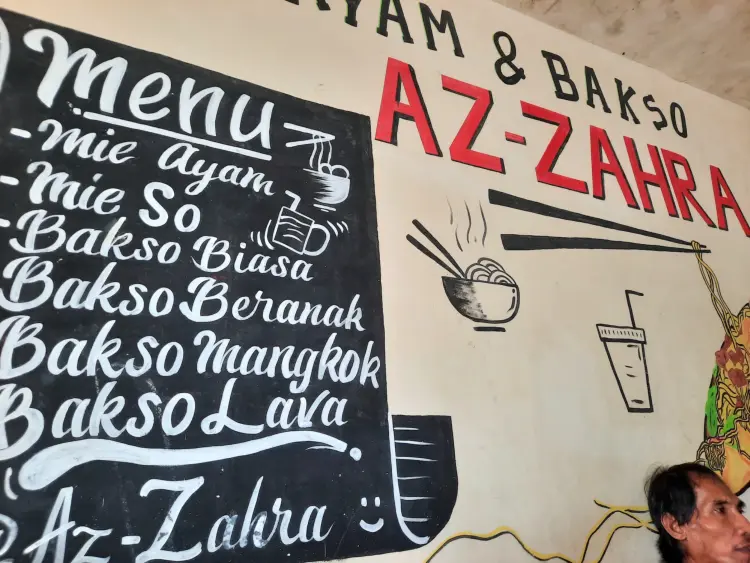 Menu
- Mie Ayam
- Mie So
- Bakso Biasa
Bakso Beranak
Bakso Mangkok
Bakso Lava
Az-Zahra
AYAM & BAKSO
AZ-ZAHRA